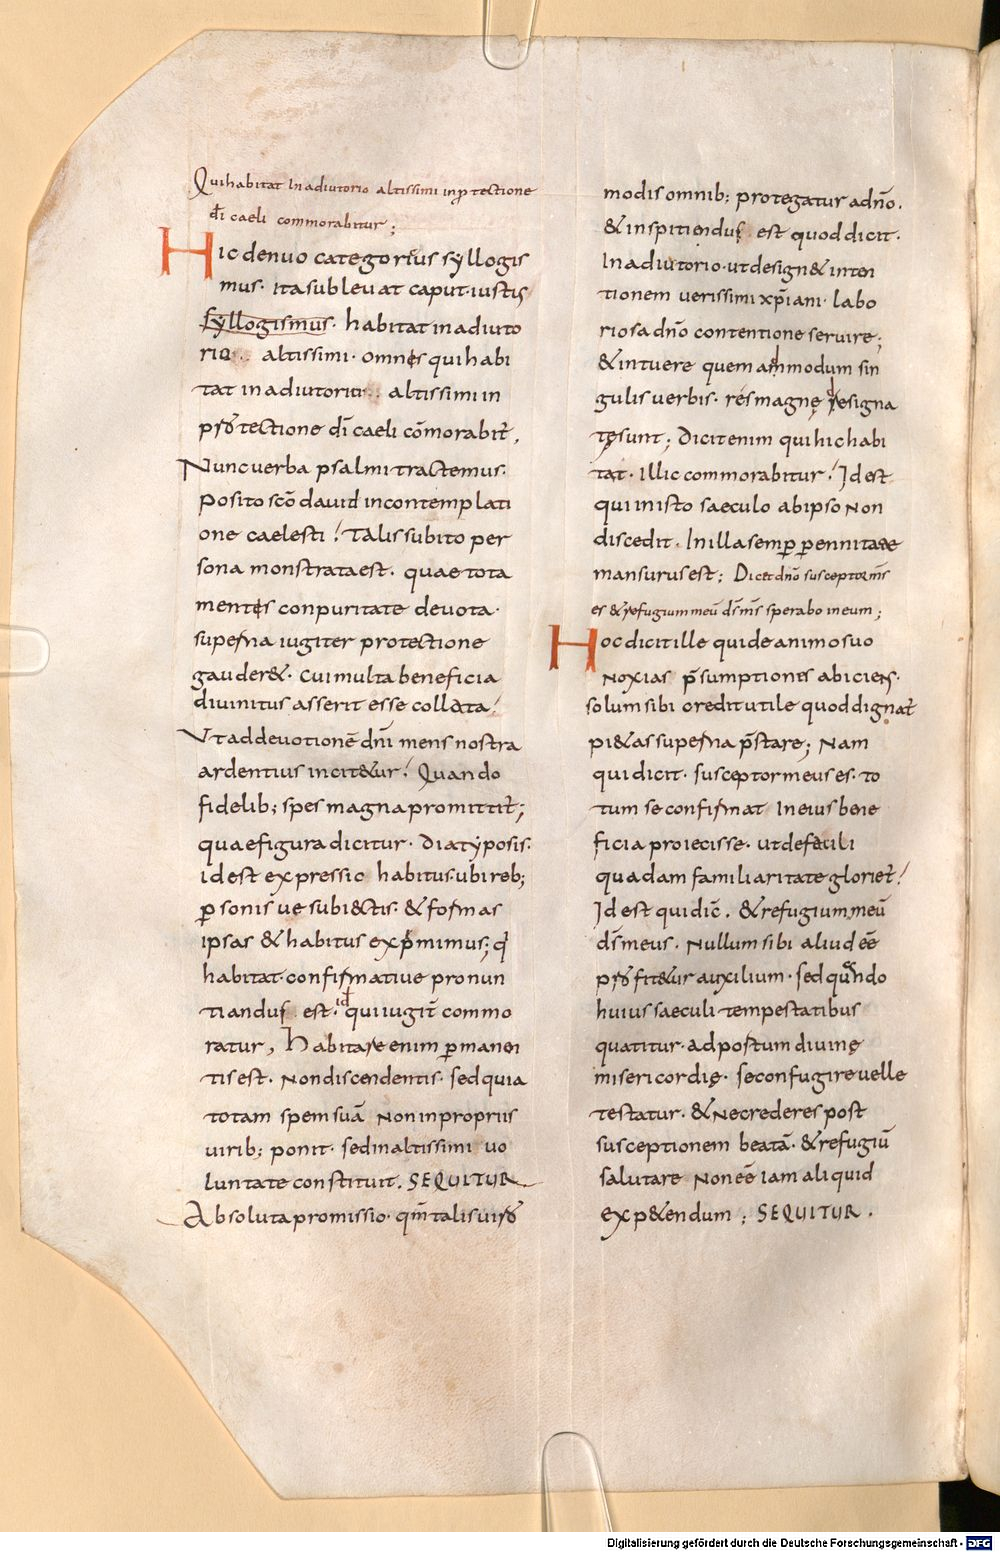 Qui habitat In adiutorio altissimi inp̱tectione
dī caeli commorabitur;
Hic denuo categoricus syllogis
mus. Ita subleuat caput. iustis
syllogismus. habitat in adiuto
rio altissimi. omnes qui habi
tat in adiutorio altissimi in
protectione dī caeli cōmorabit̄,
Nunc uerba psalmi tractemus.
Posito scō dauid in contemplati
one caelesti! Talis subito per
sona monstrata est. quae tota
mentis conpuritate deuota.
superna iugiter protectione
gauder&. cui multa beneficia
diuinitus asserit esse collata!
Ut ad deuotionē dn̄i mens nostra
ardentius incit&ur! Quando
fidelib; spes magna promittit̄;
quae figura dicitur. Diatyposis.
id est expressio habitus ubi reb;
p̱sonis ue subi&ctis. & formas
ipsas & habitus exprimimus; q̄
habitat. confirmatiue pronun
tiandus est. id qui iugit̄ commo
ratur, habitare enim p̱manen
tis est. Non discendentis. sed quia
totam spem suā Non in propriis
uirib; ponit. sed in altissimi uo
luntate constituit. SEQUITUR
Absoluta promissio. qm̄ talis uiro
modis omnib; protegatur ad n̄o.
& inspitiendus est quod dicit.
In adiutorio. ut design& inten
tionem uerissimi xp̄iani. labo
riosa dn̄o contentione seruire;
& intuere quem ammodum sin
gulis uerbis. res magnę designa
tę sunt; Dicit enim qui hic habi
tat. Illic commorabitur! Id est
qui in isto saeculo ab ipso Non
discedit. In illa semp̱ p̱ennitate
mansurus est; Dicet dn̄o susceptor m̄s
es & refugium meū ds̄ m̄s sperabo in eum;
Hoc dicit ille qui de animo suo
Noxias p̄sumptiones abiciens.
solum sibi credit utile quod dignat̄
pi&as superna p̄stare; Nam
qui dicit. susceptor meus es. to
tum se confirmat In eius bene
ficia proiecisse. ut defacili
quadam familiaritate gloriet̄!
Id est qui dic̄. & refugium meū
ds̄ meus. Nullum sibi aliud eē
profit&ur auxilium. sed quando
huius saeculi tempestatibus
quatitur. ad portum diuinę
misericordię. se confugire uelle
testatur. & Ne crederes post
susceptionem beatā. & refugiū
salutare Non eē iam aliquid
exp&endum; SEQUITUR.
Digitalisierung gefördert durch die Deutsche Forschungsgemeinschaft - DFG